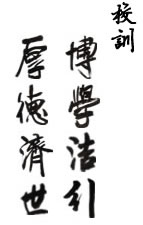 校訓
博學洁行
厚德濟世